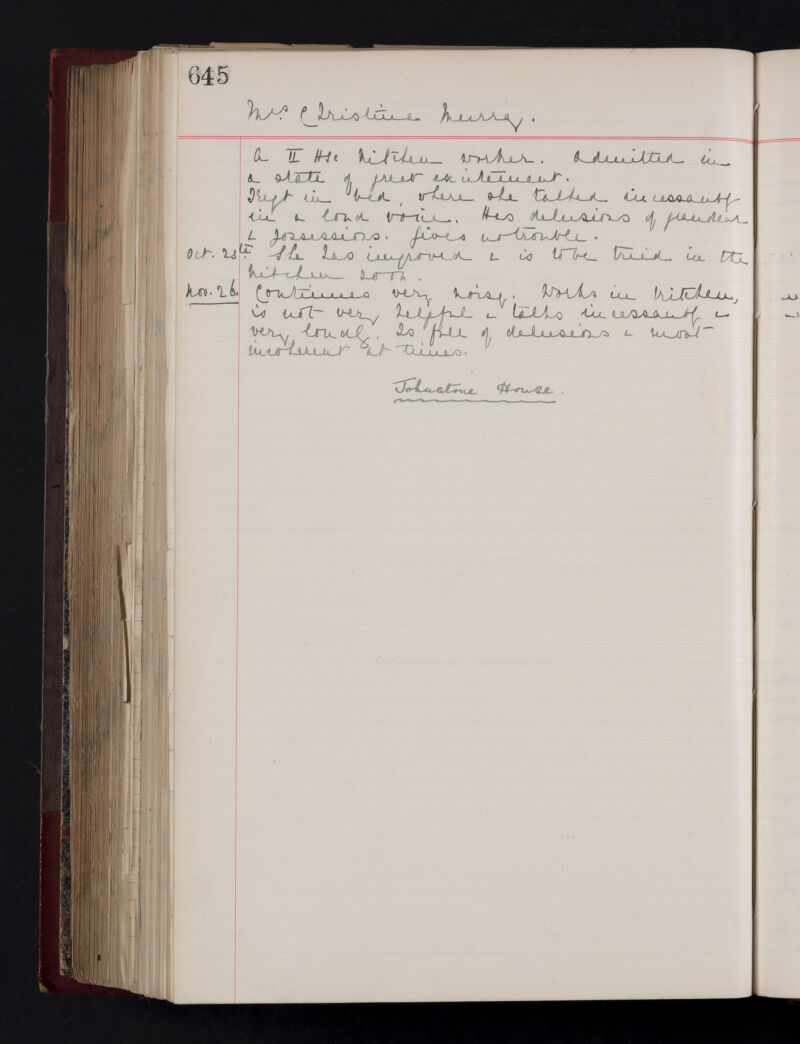 645
Mrs. Christine Murray.
A II Hse kitchen worker. Admitted in
a state of great excitement.
Kept in bed, where she talked incessantly
in a loud voice. Has delusions of grandeur
& possessions. Gives no trouble.
Oct. 28th She has improved & is to be tried in the
kitchen soon.
Nov. 26 Continues very noisy. Works in kitchen,
is not very helpful & talks incessantly &
very loudly. Is full of delusions & most
incoherent at times.
Johnstone House.